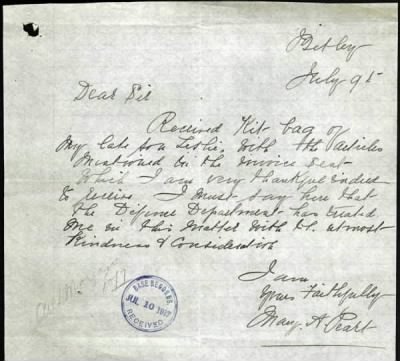 July 9th
Dear Sir
Received Kit bag of
My late son Leslie, with the articles
Mentioned on the invoice sent
Which I am very thankful indeed
to receive. I must say here that
the Defence Department has treated
Me in this Matter with the utmost
Kindness & Consideration
I am
Yours Faithfully
Mary. A Peart
BASE RECORDS
JUL 10 1917
RECEIVED